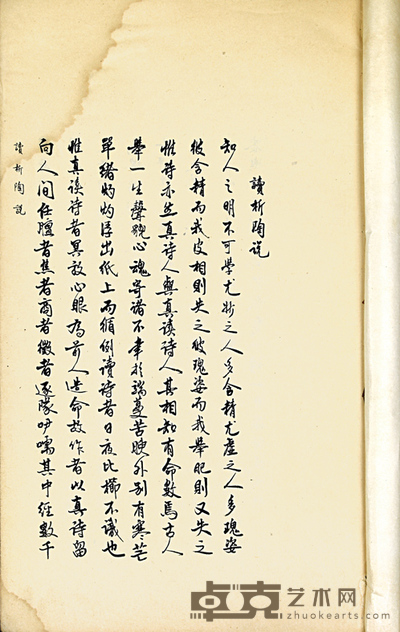 讀析陶說
知人之明不可學尤妙之人多含精尤虛之人多瑰姿
彼含精而我皮相則失之彼瑰姿而我舉肥則又失之
惟詩亦然真詩人與真讀詩人其相知有命數焉古人
舉一生聲貌心魂寄諸不聿於端蔓苦腴外別有寒芒
單緒灼灼浮出紙上而循例讀詩者日夜比櫛不識也
惟真讀詩者異放心眼為前人造命故作者以真詩留
向人間任膻者焦者商者徵者逐隊吚嚅其中經數千
讀析陶說
卓克艺术网
zhuokearts.com